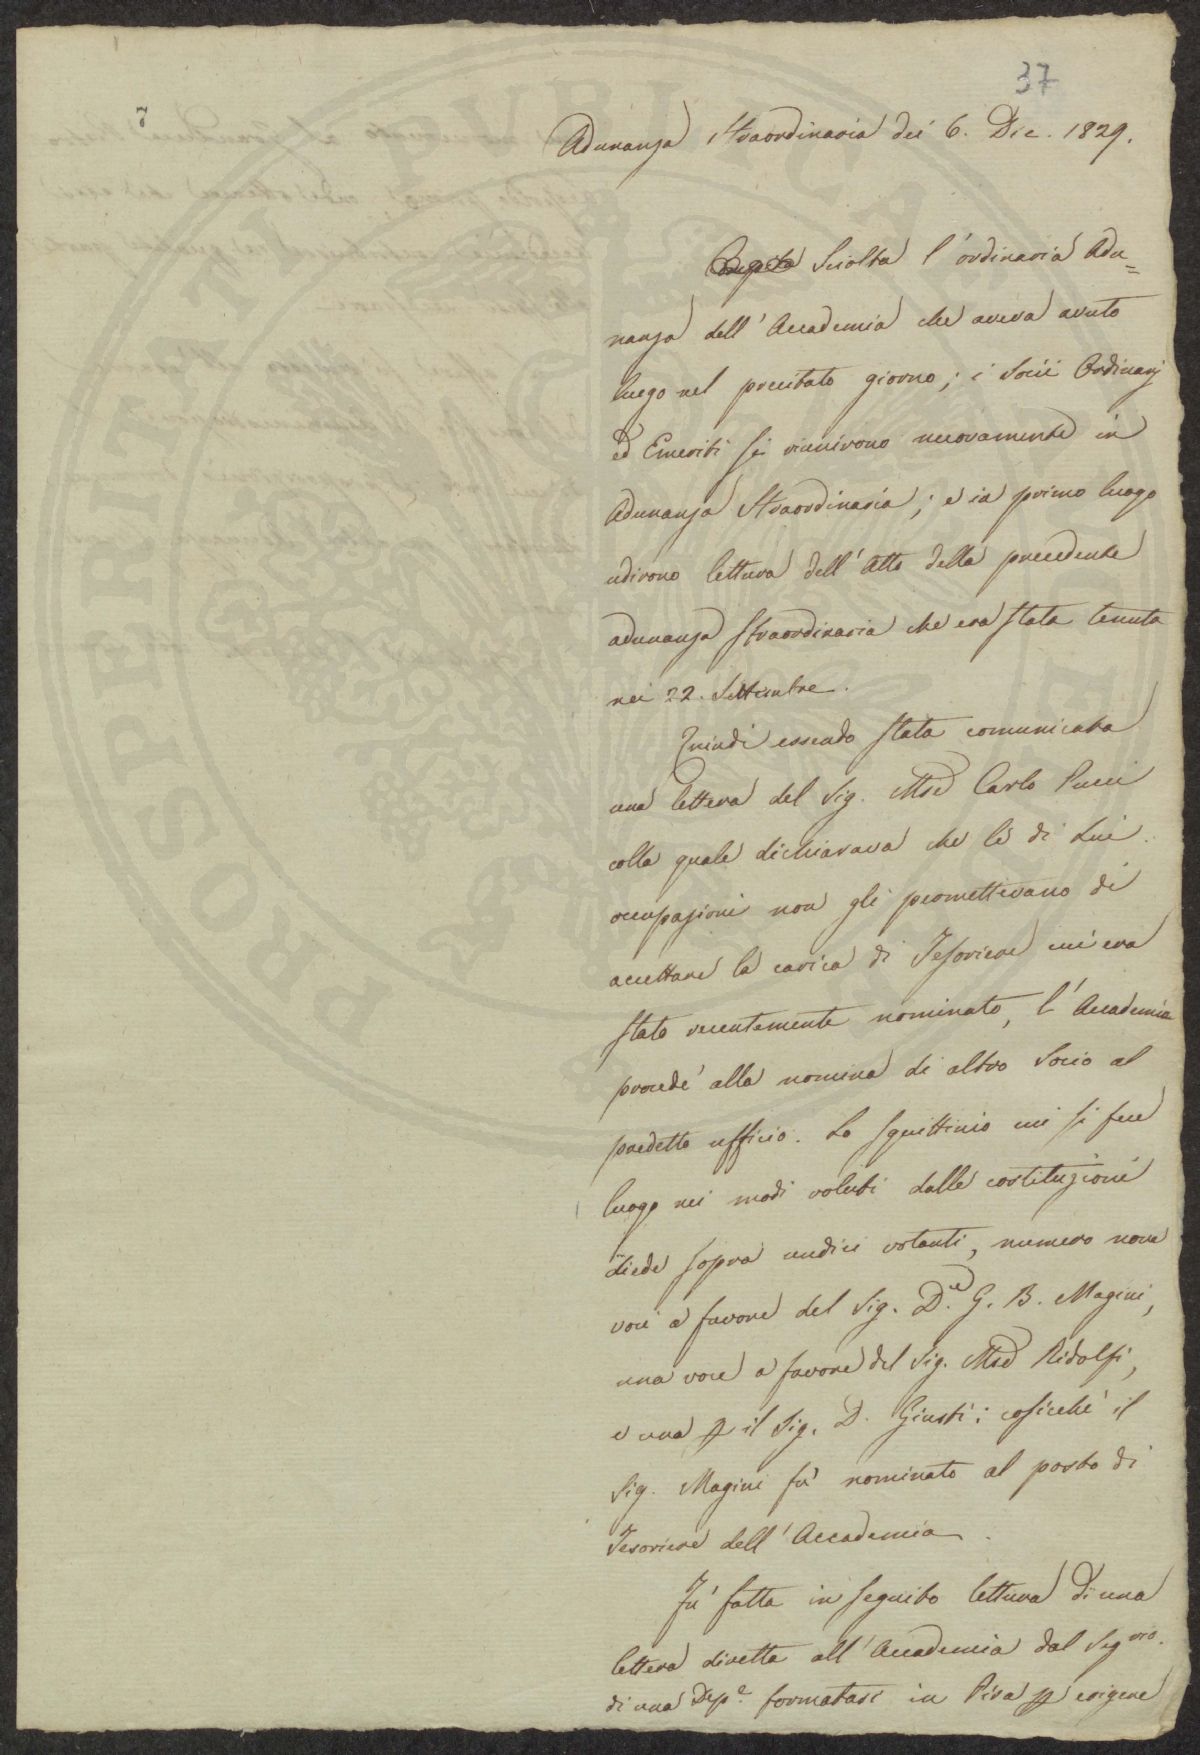 37
7
Adunanza Straordinaria dei 6. Dic. 1829.
Sciolta l'ordinaria Adu=
nanza dell'Accademia che aveva avuto
luogo nel precitato giorno; i Socii Ordinarj
ed Emeriti si riunirono nuovamente in
Adunanza Straordinaria; e in primo luogo
udirono lettura dell'Atto della precedente
adunanza straordinaria che era stata tenuta
nei 22. Settembre.
Quindi essendo stata comunicata
una lettera del Sig. Mse Carlo Pucci
colla quale dichiarava che le di lui
occupazioni non gli permettevano di
accettare la carica di Tesoriere cui era
stato recentemente nominato, l'Accademia
procedé alla nomina di altro Socio al
predetto ufficio. Lo squittinio cui si fece
luogo nei modi voluti dalle costituzioni
diede sopra undici votanti, numero nove
voci a favore del Sig. D.re G. B. Magini,
una voce a favore del Sig. Mse Ridolfi,
e una p il Sig. D. Giusti; cosicché il
Sig. Magini fù nominato al posto di
Tesoriere dell'Accademia.
Fu fatta in seguito lettura di una
lettera diretta all'Accademia dal Seg.rio
di una Dep.e formatasi in Pisa p erigere
PRINCIPIS PVBLICAE